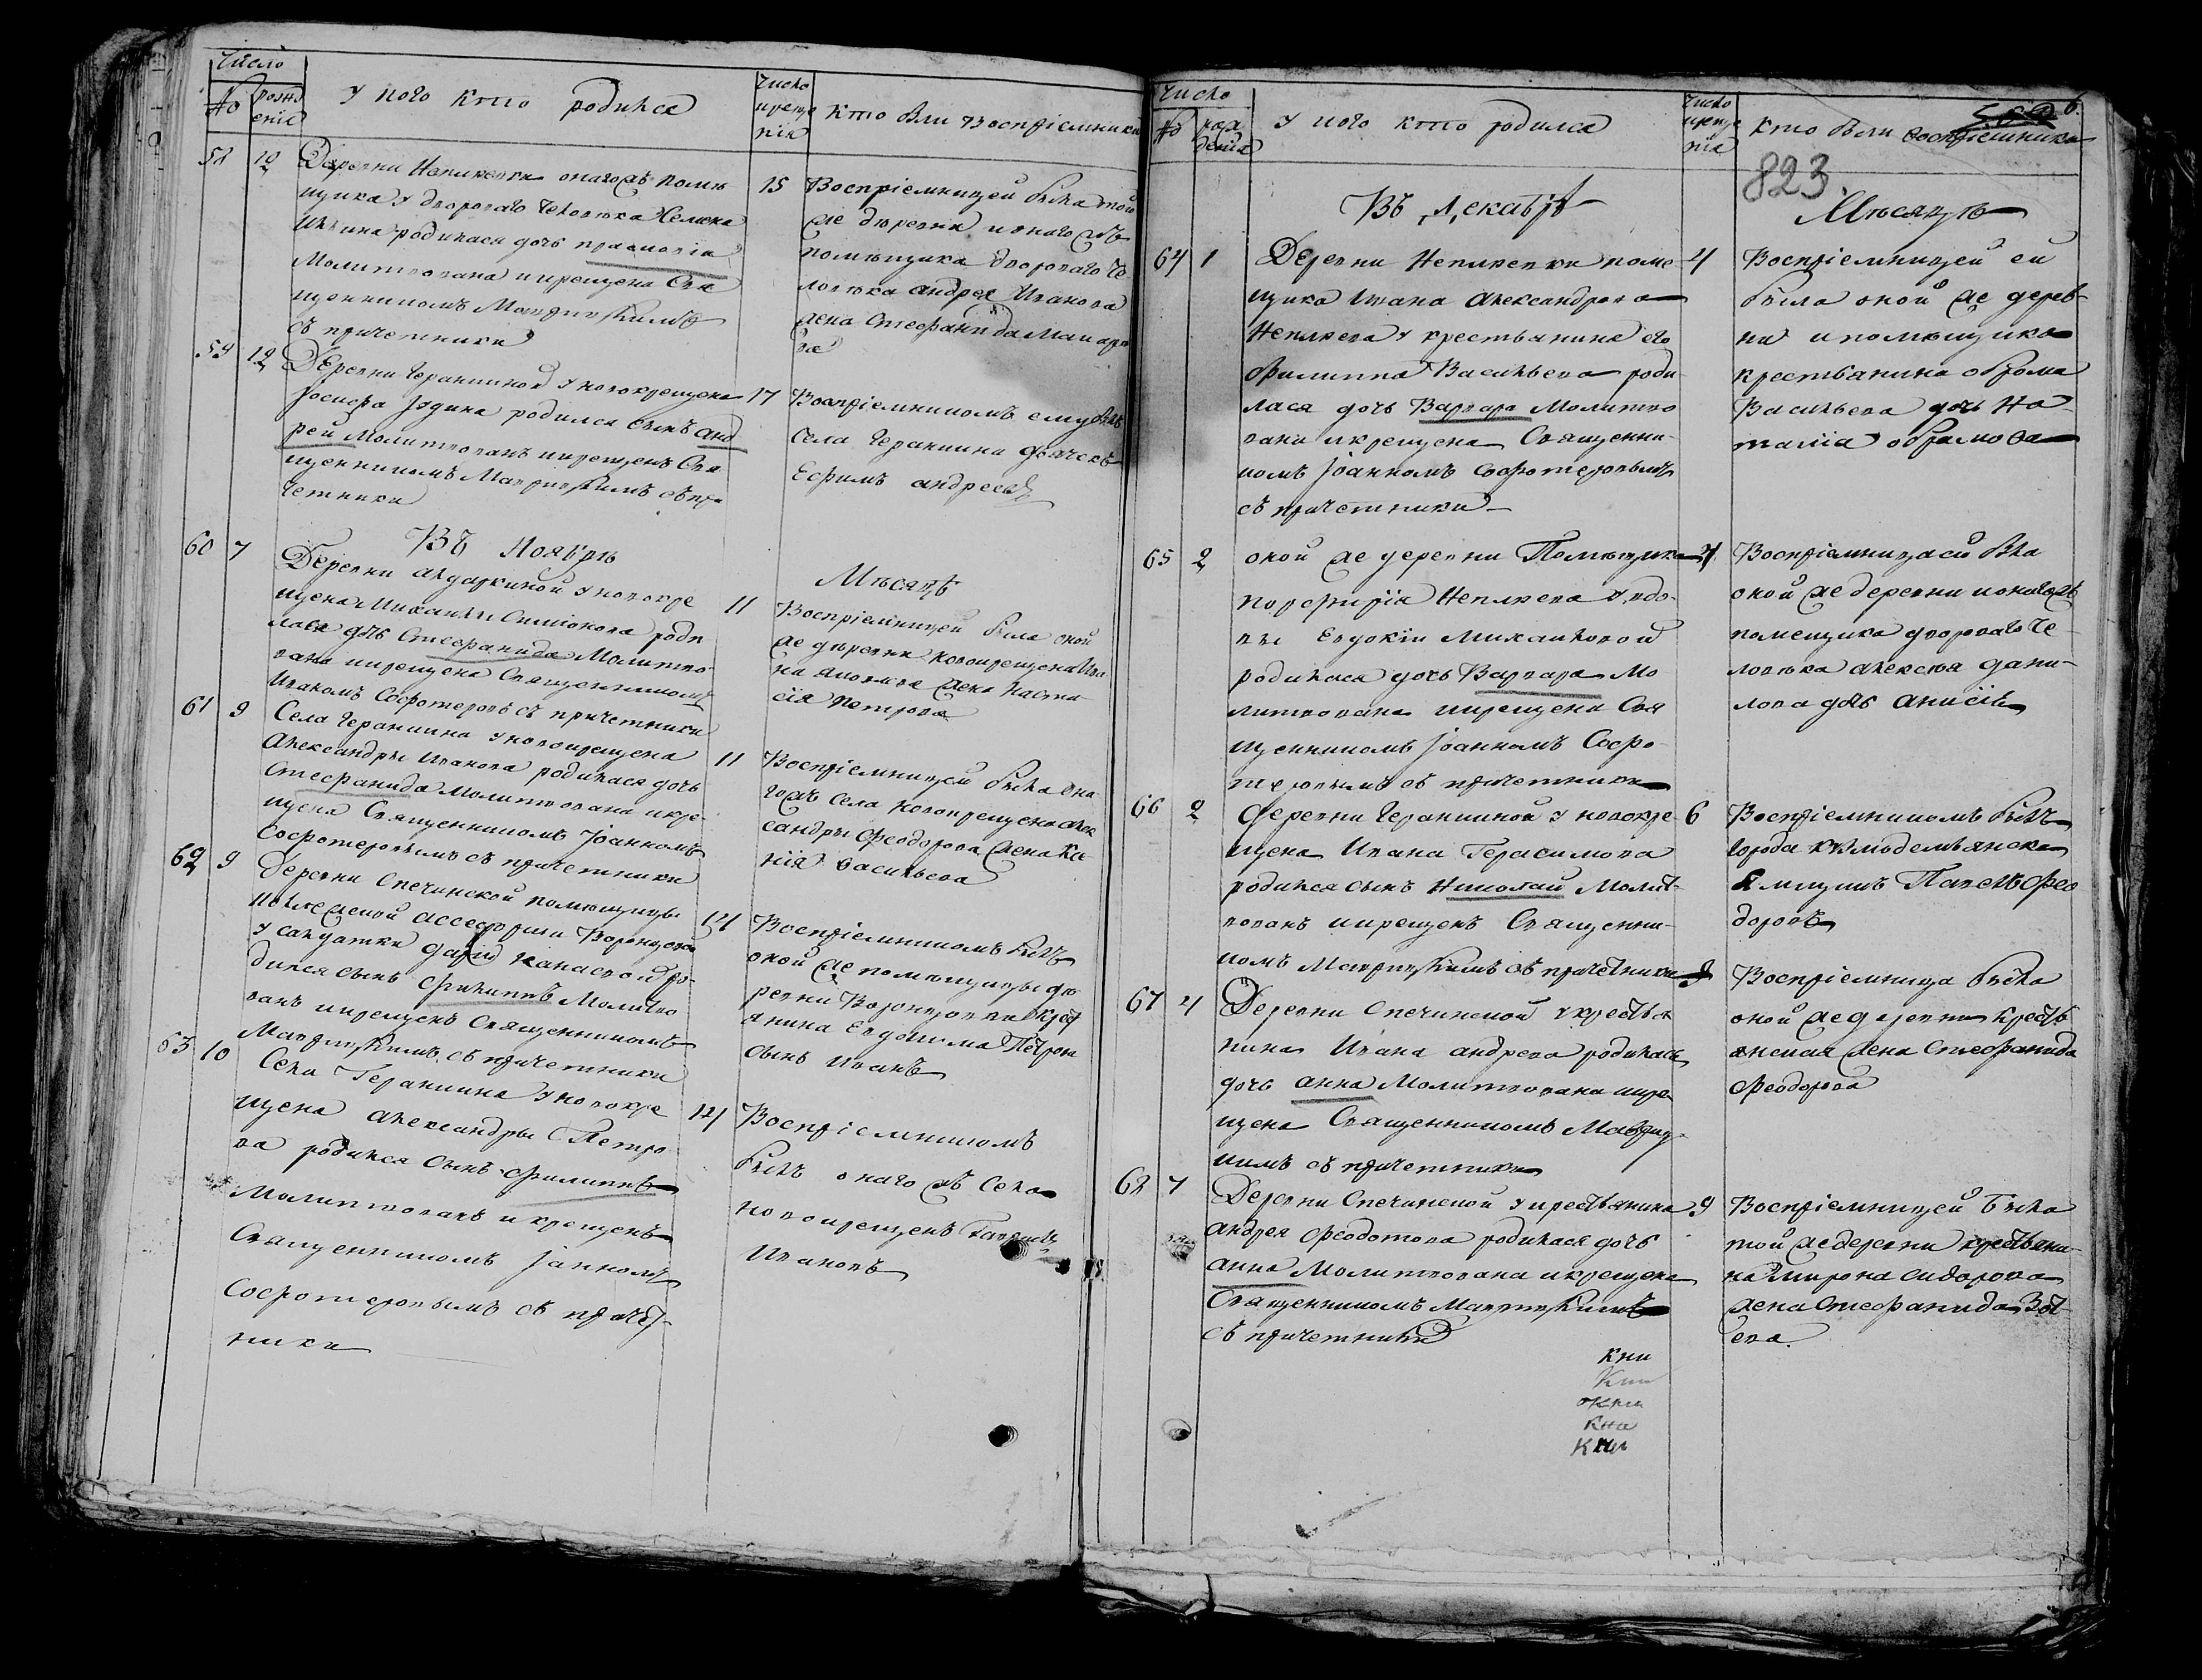 Число
№ рожденія
У кого кто родился
Число крещенія
Кто были Восприемники
58 12 15
Деревни Неплюевки онагожъ помѣ
щика у двороваго человѣка
Ильина родилася дочь
Молитвована и крещена Свя
щенникомъ
съ причетники
Восприемницей была той
же деревни и онагожъ
помѣщика двороваго че
ловѣка андрея Иванова
жена Стефанида Макаро
ва
59 12 17
Деревни Геранкиной у новокрещена
родился сынъ анд
рей Молитвованъ и крещенъ Свя
щенникомъ съ при
четники
Восприемникомъ ему былъ
Села Геранкина дьячекъ
Ефимъ андреевъ
Въ Ноябрѣ
Мѣсяцѣ
60 7 11
Деревни у новокре
щена Михаилы Симіонова роди
лася дочь Стефанида Молитво
вана и крещена Священникомъ
Иваномъ съ причетники
Восприемницей была оной
же деревни новокрещена Ива
на жена Наста
сія Петрова
61 9 11
Села Геранкина у новокрещена
Александры Иванова родилася дочь
Стефанида Молитвована и кре
щена Священникомъ Іоанномъ
Софотеровымъ съ причетники
Восприемницей была она
гожъ Села новокрещена Алек
сандры Феодорова жена
Васильева
62 9 14
Деревни Спечинской помещицы
ассесорши Воронцовой
у салдатки ро
дился сынъ Филиппъ Молитво
ванъ и крещенъ Священникомъ
съ причетники
Восприемникомъ былъ
оной же помѣщицы де
ревни крест
янина Евдокима Петрова
сынъ Иванъ
63 10 14
Села Геранкина у новокре
щена Александры Петро
ва родился сынъ Филиппъ
Молитвованъ и крещенъ
Священникомъ Іанномъ
Софотеровымъ съ причет
ники
Восприемникомъ
былъ онагожъ Села
новокрещенъ
Ивановъ
Число
№ рожденія
У кого кто родился
Число крещенія
Кто были восприемники
823
Въ Декабрѣ
Мѣсяцѣ
64 1 4
Деревни Неплюевки поме
щика Ивана Александрова
Неплюева у крестьянина его
Филиппа Васильева роди
лася дочь Варвара Молитво
вана и крещена Священни
комъ Іоанномъ Софотеровымъ
съ причетники
Восприемницей ей
была оной же дерев
ни и помѣщика
крестьянина
Васильева дочь На
талія
65 2 4
оной же деревни Помѣщика
Порфирія Неплюева у вдо
вы Евдокіи Михаиловой
родилася дочь Варвара Мо
литвована и крещена Свя
щенникомъ Іоанномъ Софо
теровымъ съ причетники
Восприемницей была
оной же деревни и онагожъ
помещика двороваго че
ловѣка алексѣя дани
лова дочь
66 2 6
деревни Геранкиной у новокре
щена Ивана Герасимова
родился сынъ Николай Молит
вованъ и крещенъ Священни
комъ съ причетники
Восприемникомъ былъ
города Козмодемьянска
Ямщикъ Павелъ Фео
доровъ
67 4 9
Деревни Спечинской у крестья
нина Ивана андреева родилась
дочь анна Молитвована и кре
щена Священникомъ
съ причетники
Восприемница была
оной же деревни кресть
янская жена Стефанида
Феодорова
68 7 9
Деревни Спечинской у крестьянина
андрея Феодотова родилася дочь
анна Молитвована и крещена
Священникомъ
съ причетники
Восприемницей была
той же деревни крестьяни
на Мирона Сидорова
жена Стефанида Зот
ева